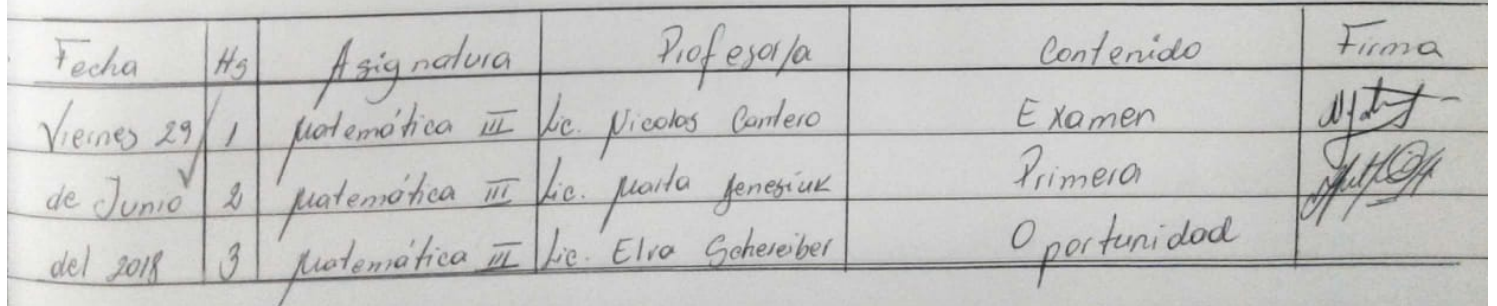 Fecha Hs Asignatura Profesor/a Contenido Firma
Viernes 29 1 Matemática III Lic. Nicolas Cantero Examen
de Junio 2 Matemática III Lic. Marta Jenesiuk Primera
del 2018 3 Matemática III Lic. Elva Schereiber Oportunidad